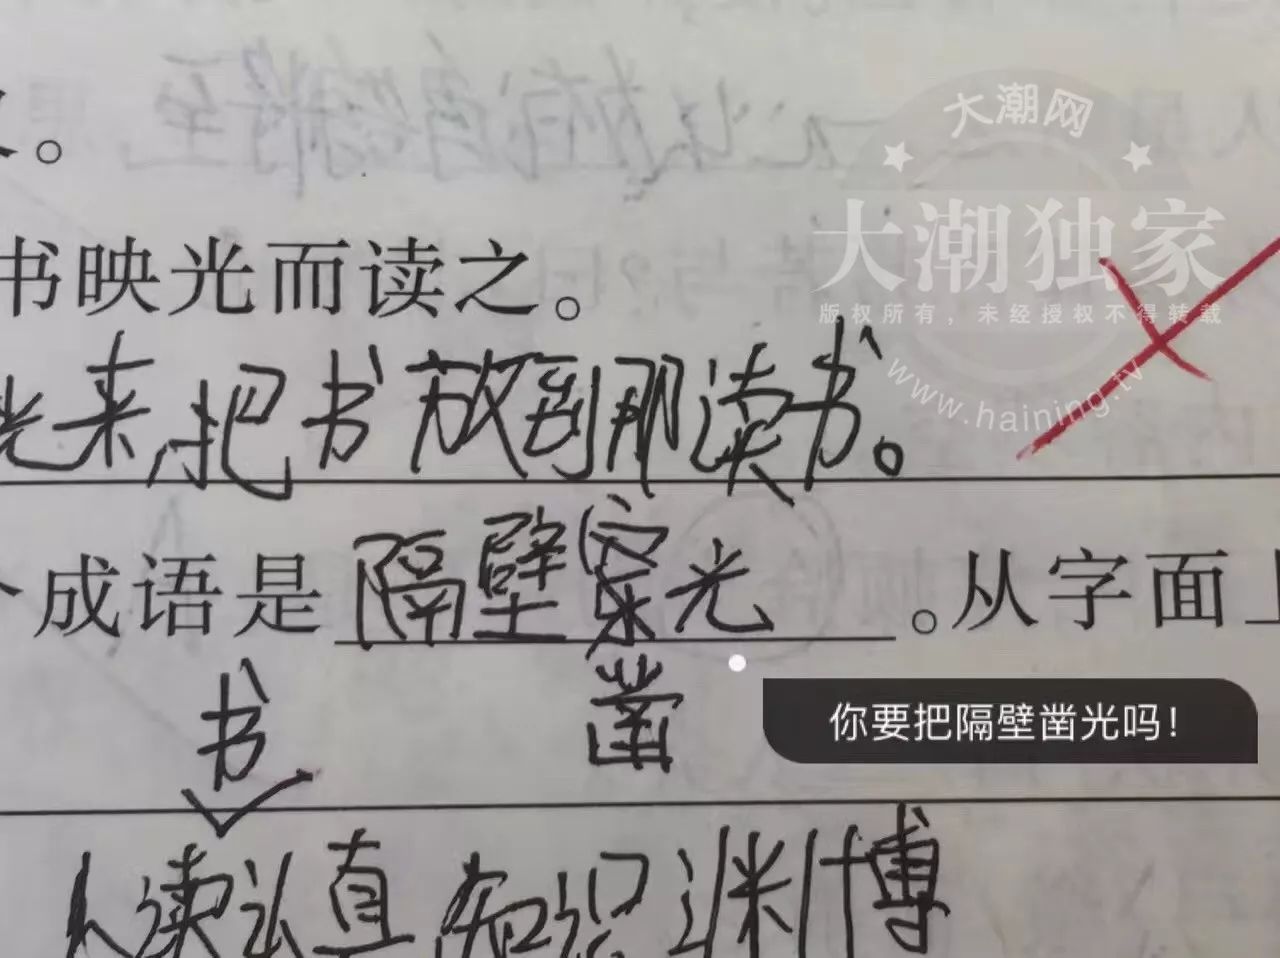 大潮网
大潮独家
版权所有，未经授权不得转载
www.haining.tv
。
书映光而读之。
光来，把书放到那读书。
个成语是隔壁 光。从字面上
书 凿
你要把隔壁凿光吗！
人读认真 知识渊博